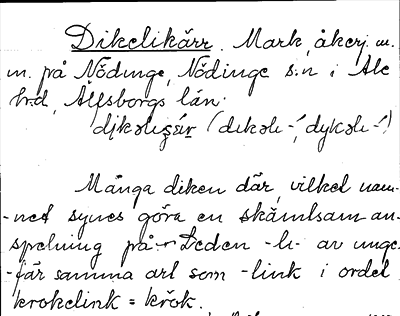 Dikelikärr. Mark, åkerj. m.
m. på Nödinge, Nödinge s:n i Ale
h:d, Älfsborgs län.
Många diken där, vilket nam-
-net synes göra en skämtsam an-
spelning på. Leden -li- av unge-
-fär samma art som -link i ordet
krokelink = krok.